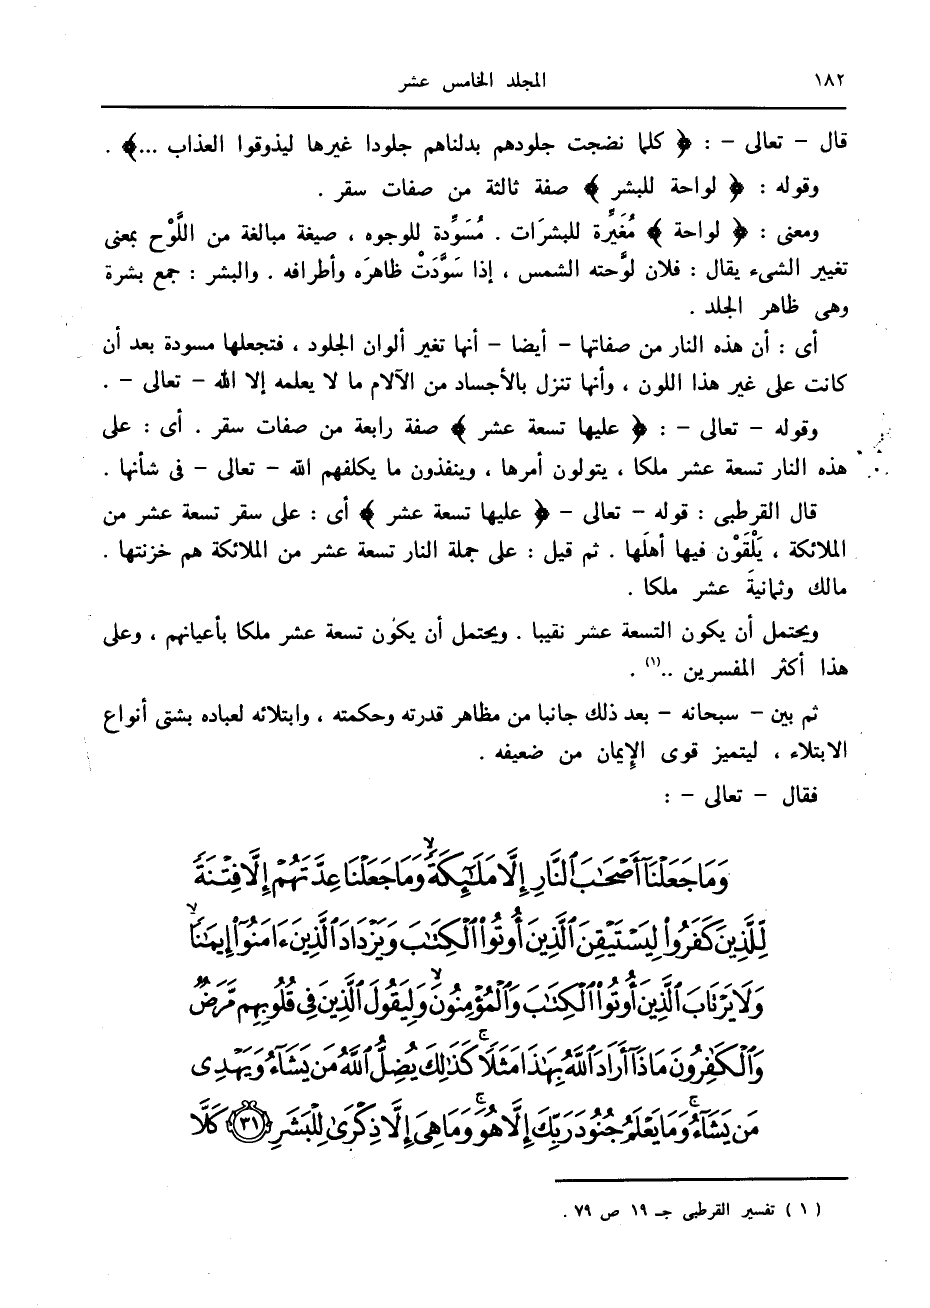 ١٨٢ المجلد الخامس عشر
قال – تعالى – : ﴿ كلما نضجت جلودهم بدلناهم جلودا غيرها ليذوقوا العذاب ...﴾ .
وقوله : ﴿ لواحة للبشر ﴾ صفة ثالثة من صفات سقر .
ومعنى : ﴿ لواحة ﴾ مُغَيِّرة للبشرَات . مُسَوِّدة للوجوه ، صيغة مبالغة من اللَّوْح بمعنى
تغيير الشىء يقال : فلان لوَّحته الشمس ، إذا سَوَّدَتْ ظاهرَه وأطرافه . والبشر : جمع بشرة
وهى ظاهر الجلد .
أى : أن هذه النار من صفاتها – أيضا – أنها تغير ألوان الجلود ، فتجعلها مسودة بعد أن
كانت على غير هذا اللون ، وأنها تنزل بالأجساد من الآلام ما لا يعلمه إلا الله – تعالى – .
وقوله – تعالى – : ﴿ عليها تسعة عشر ﴾ صفة رابعة من صفات سقر . أى : على
هذه النار تسعة عشر ملكا ، يتولون أمرها ، وينفذون ما يكلفهم الله – تعالى – فى شأنها .
قال القرطبى : قوله – تعالى – ﴿ عليها تسعة عشر ﴾ أى : على سقر تسعة عشر من
الملائكة ، يَلْقَوْن فيها أهلَها . ثم قيل : على جملة النار تسعة عشر من الملائكة هم خزنتها .
مالك وثمانيةَ عشر ملكا .
ويحتمل أن يكون التسعة عشر نقيبا . ويحتمل أن يكون تسعة عشر ملكا بأعيانهم ، وعلى
هذا أكثر المفسرين ..(١) .
ثم بين – سبحانه – بعد ذلك جانبا من مظاهر قدرته وحكمته ، وابتلائه لعباده بشتى أنواع
الابتلاء ، ليتميز قوى الإيمان من ضعيفه .
فقال – تعالى – :
وَمَا جَعَلْنَآ أَصْحَٰبَ ٱلنَّارِ إِلَّا مَلَٰٓئِكَةًۙ وَمَا جَعَلْنَا عِدَّتَهُمْ إِلَّا فِتْنَةً
لِّلَّذِينَ كَفَرُوا۟ لِيَسْتَيْقِنَ ٱلَّذِينَ أُوتُوا۟ ٱلْكِتَٰبَ وَيَزْدَادَ ٱلَّذِينَ ءَامَنُوٓا۟ إِيمَٰنًاۙ
وَلَا يَرْتَابَ ٱلَّذِينَ أُوتُوا۟ ٱلْكِتَٰبَ وَٱلْمُؤْمِنُونَۙ وَلِيَقُولَ ٱلَّذِينَ فِى قُلُوبِهِم مَّرَضٌ
وَٱلْكَٰفِرُونَ مَاذَآ أَرَادَ ٱللَّهُ بِهَٰذَا مَثَلًاۚ كَذَٰلِكَ يُضِلُّ ٱللَّهُ مَن يَشَآءُ وَيَهْدِى
مَن يَشَآءُۚ وَمَا يَعْلَمُ جُنُودَ رَبِّكَ إِلَّا هُوَۚ وَمَا هِىَ إِلَّا ذِكْرَىٰ لِلْبَشَرِ ٣١ كَلَّا
(١) تفسير القرطبى جـ ١٩ ص ٧٩ .